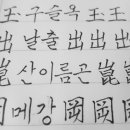 玉: 구슬옥 王王
出 날출 出出出
崑 산이름곤 崑崑
岡 메강 岡岡岡